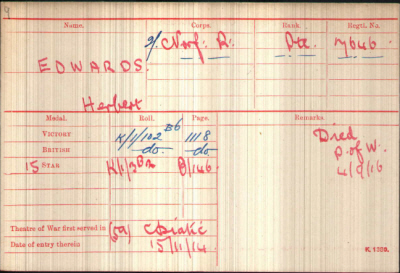 Name. Corps. Rank. Regtl. No.
2/ Norf: R: Pte 7646
EDWARDS.
Herbert
Medal. Roll. Page. Remarks.
VICTORY K/1/102 B6 1118 Died
BRITISH do. do D. of W.
15 STAR K/1/3 B2 8/146 4/9/16
Theatre of War first served in (5a) Asiatic
Date of entry therein 15/11/14
K. 1380.